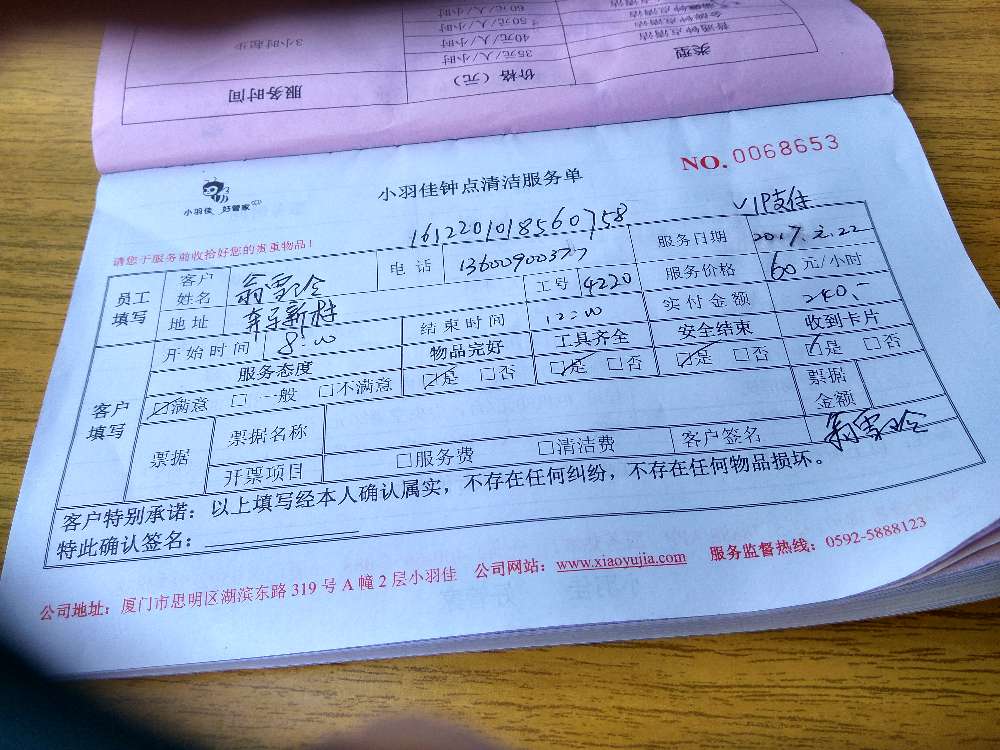 服务时间 价格（元） 类型
3小时起步 35元/人/小时 普通钟点清洁
40元/人/小时
50元/人/小时
60元/人/小时
小羽佳 好管家
小羽佳钟点清洁服务单
NO.0068653
请您于服务前收拾好您的贵重物品！
1612201018560758
VIP支付
员工填写 客户姓名 翁雪玲 电话 13600900377 服务日期 2017.2.22
地址 工号 4220 服务价格 60元/小时
开始时间 8:00 结束时间 12:00 实付金额 240.-
客户填写 服务态度 物品完好 工具齐全 安全结束 收到卡片
☑满意 □一般 □不满意 ☑是 □否 ☑是 □否 ☑是 □否 ☑是 □否
票据 票据名称 票据金额
开票项目 □服务费 □清洁费 客户签名 翁雪玲
客户特别承诺：以上填写经本人确认属实，不存在任何纠纷，不存在任何物品损坏。
特此确认签名：
公司地址：厦门市思明区湖滨东路319号A幢2层小羽佳 公司网站：www.xiaoyujia.com 服务监督热线：0592-5888123